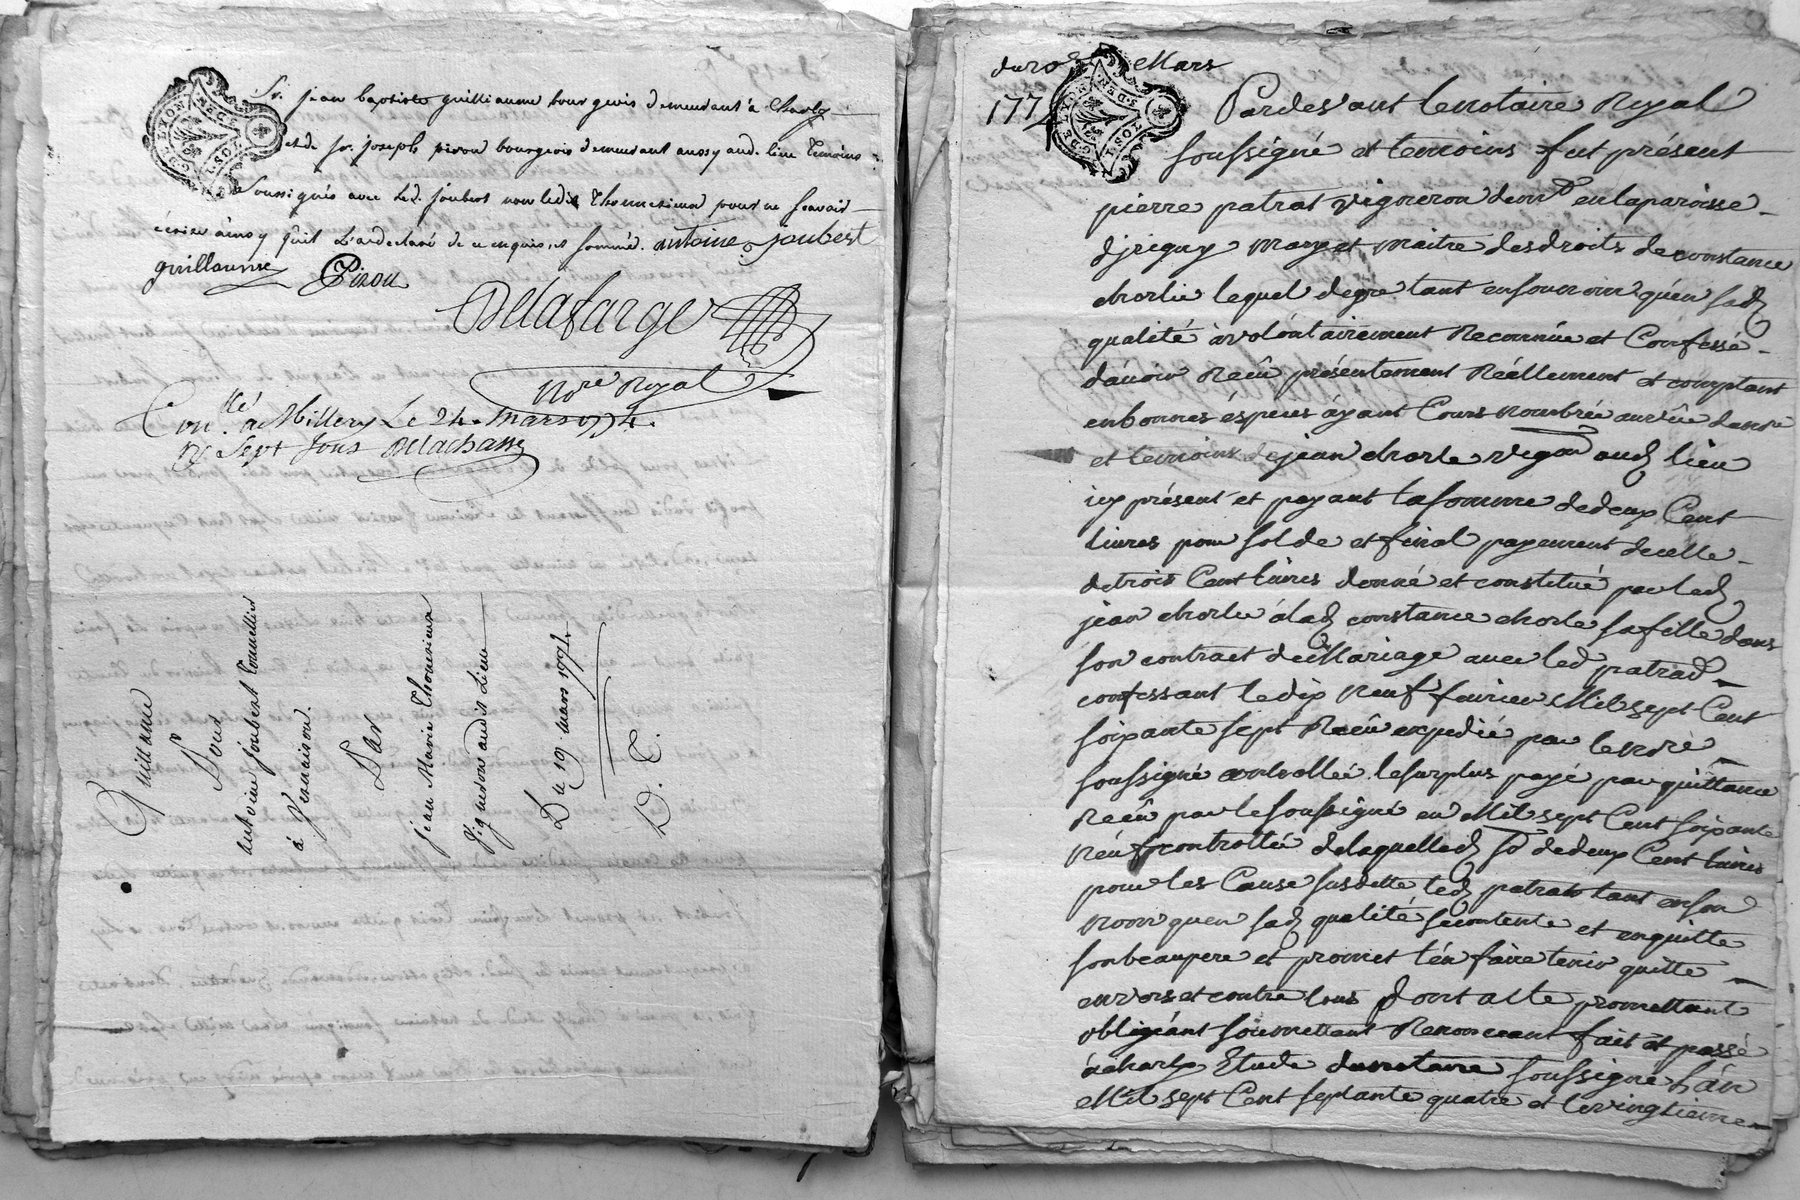 Sr. jean baptiste guilliaume bourgeois demeurant à Charly
et de sr. joseph pizou bourgeois demeurant aussy aud. lieu temoins
soussignés avec led. joubert non ledit Thonnerieux pour ne sçavoir
écrire ainsy qu'il l'a declaré de ce enquis et sommé. antoine joubert
guillaume Pizou
Delafarge
Nore Royal
Conllé à Millery Le 24. mars 1774.
Sept sous Delachass
Quittance
Pour
antoine joubert tonnellier
à Vernaison.
Par
jean Marie Thonnerieux
vigneron audit Lieu
Du 19. mars 1774.
D. C.
G. DE LYON
2. S. DEN
du 20e Mars
1774
Pardevant le notaire Royal
soussigné et temoins fut présent
pierre patras vigneron demt en la paroisse
d'jrigny mary et maitre des droits de constance
chorlie lequel de gre tant en son nom qu'en sad
qualité à volontairement Reconnue et Confessé
d'avoir Recû présentement Réellement et comptant
en bonnes éspeces áyant Cours nombrée au vûe du nre
et temoins de jean chorle vigon aud lieu
icy présent et payant la somme de deux Cent
livres pour solde et final payement de celle
de trois Cent livres donné et constitué par led
jean chorlie à lad constance chorle sa fille dans
son contract de Mariage avec led patrad
confessant le dix neuf fevrier Mil sept Cent
soixante sept Recû expedié par le nore
soussigné controllée le surplus payé par quittance
Recû par le soussigné en Mil sept Cent soixante
neuf controllée de laquelled se de deux Cent livres
pour les Cause susdette led patras tant en son
nom qu'en sad qualité se contente et en quitte
son beaupere et promet l'en faire tenir quitte
envers et contre tous Dont acte promettant
obligéant soumettant Renonceant fait et passé
à charly Etude du notaire soussigné L'an
Mil sept Cent septante quatre et le vingtieme